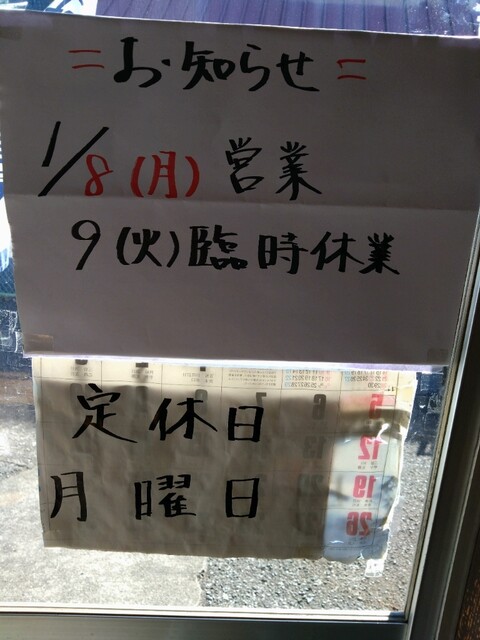 =お知らせ=
1/8(月)営業
9(火)臨時休業
定休日
月曜日
5
12
19
26